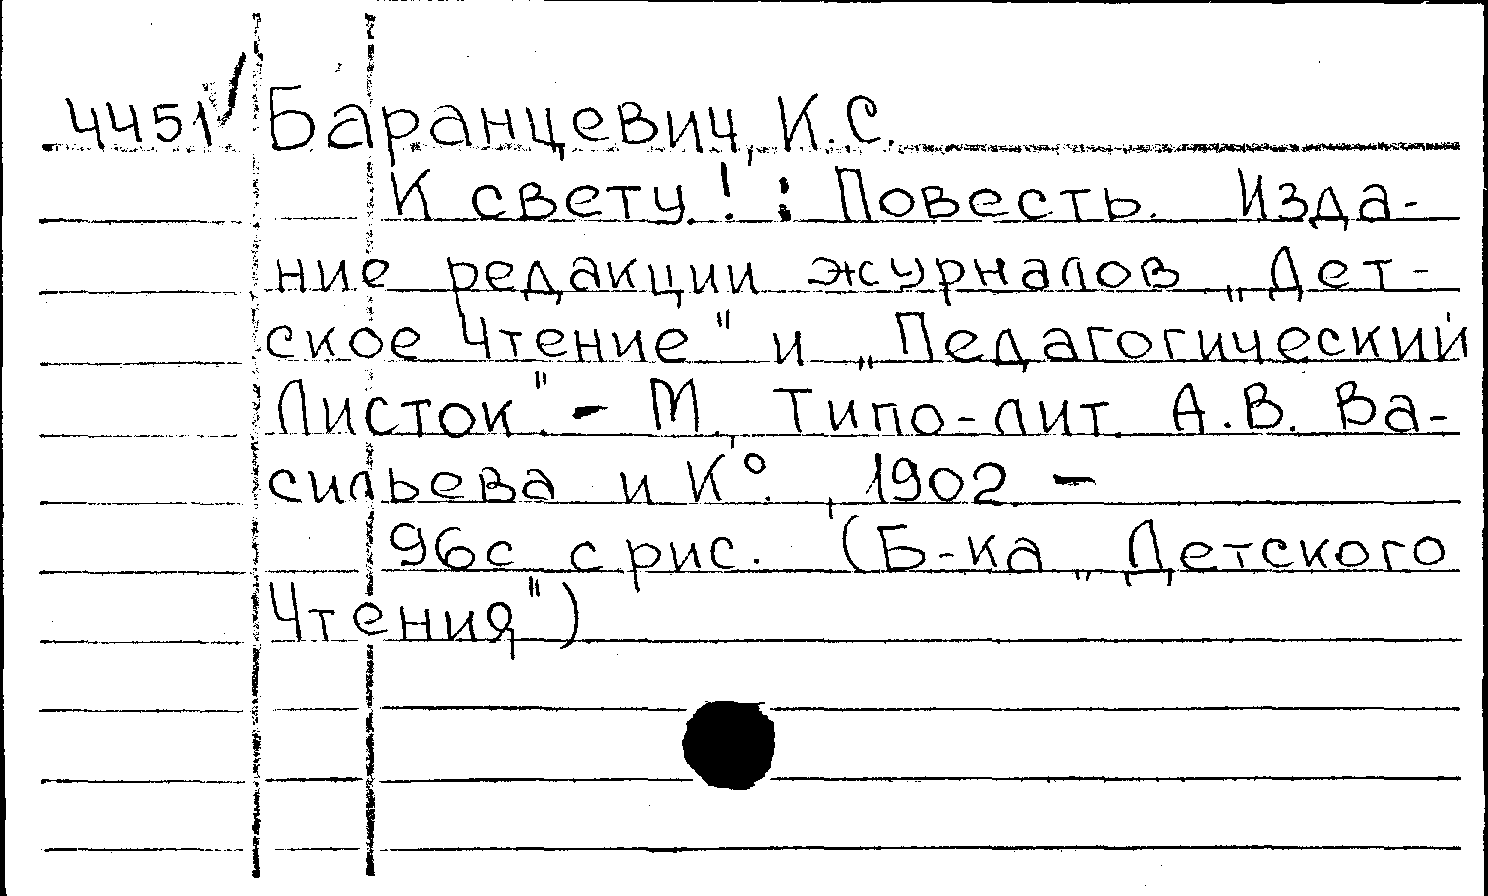 4451 Баранцевич, К.С.
К свету! : Повесть. Изда-
ние редакции журналов „Дет-
ское Чтение" и „Педагогический
Листок". - М., Типо-лит. А.В. Ва-
сильева и К°., 1902 -
96с с рис. (Б-ка „Детского
Чтения")